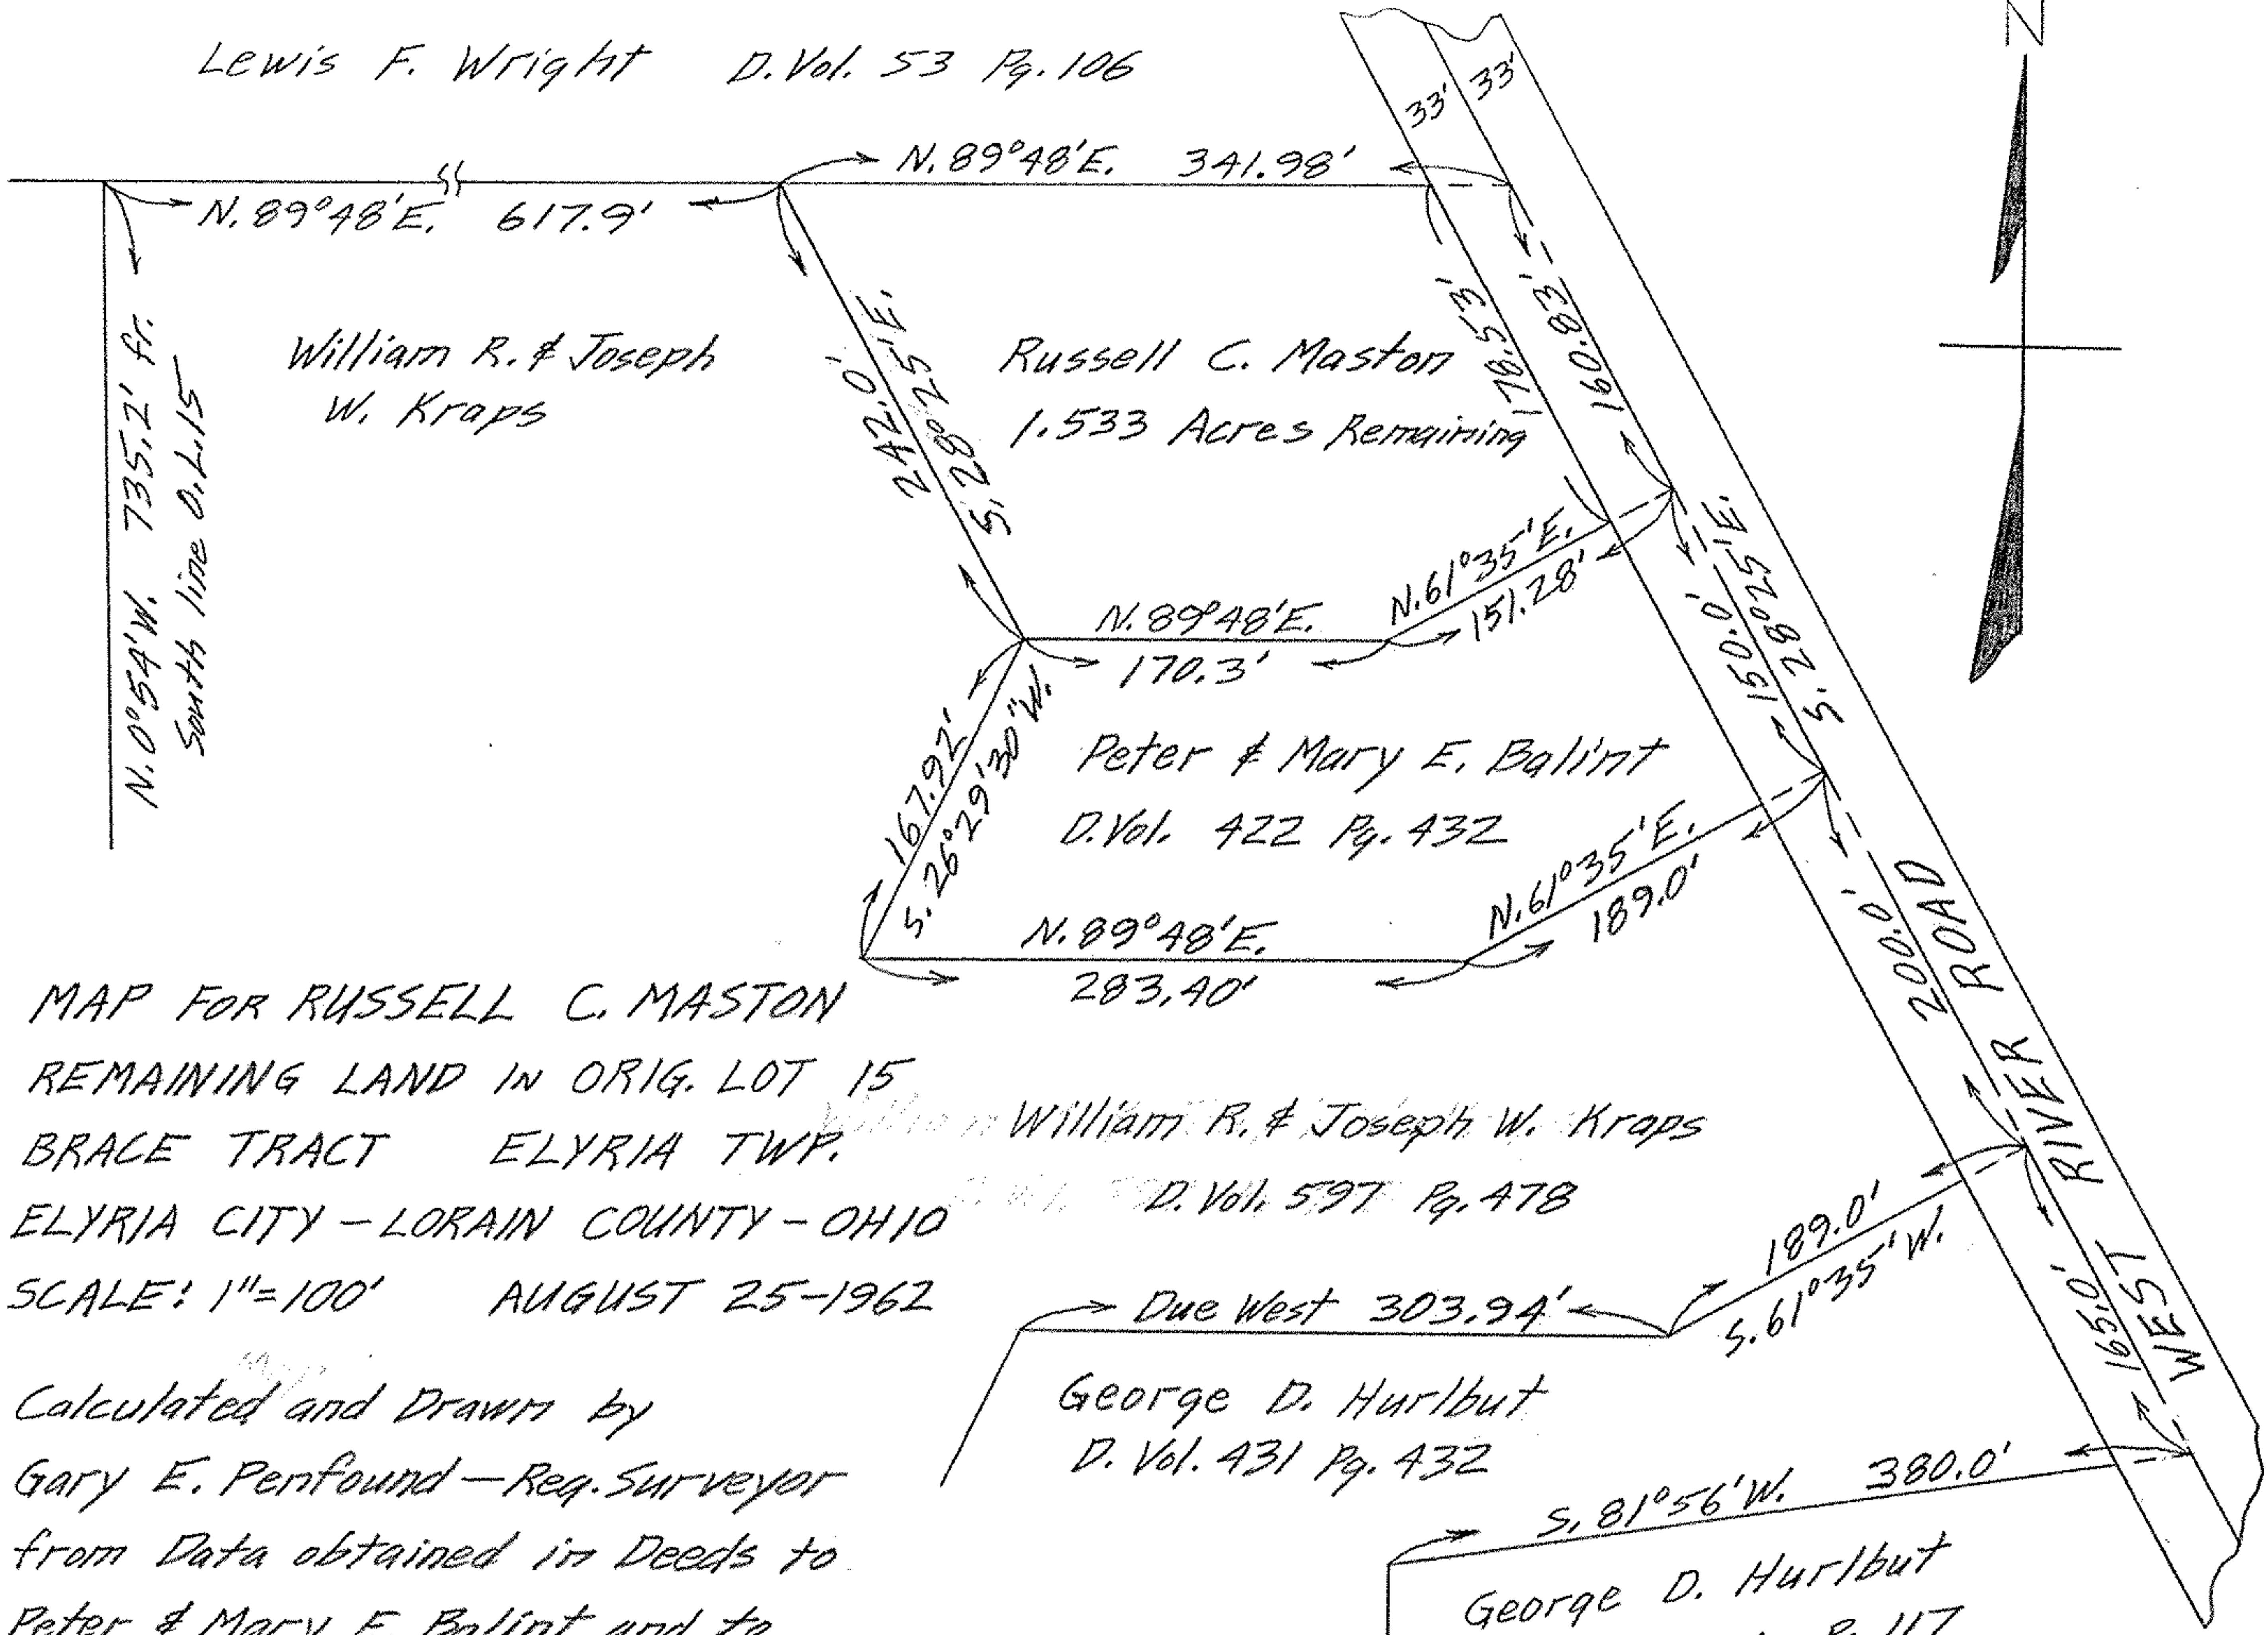 N
Lewis F. Wright D.Vol. 53 Pg. 106
33' 33'
N. 89°48'E. 341.98'
N. 89°48'E. 617.9'
N. 0°54'W. 735.2' fr.
South line O.L.15
William R. & Joseph
W. Kraps
242.0'
S. 28°25'E.
Russell C. Maston
1.533 Acres Remaining
178.53'
160.83'
N. 61°35'E.
151.28'
N. 89°48'E.
170.3'
150.0'
S. 28°25'E.
167.92'
S. 26°29'30"W.
Peter & Mary E. Balint
D.Vol. 422 Pg. 432
N. 61°35'E.
189.0'
N. 89°48'E.
283.40'
200.0'
WEST RIVER ROAD
MAP FOR RUSSELL C. MASTON
REMAINING LAND IN ORIG. LOT 15
BRACE TRACT ELYRIA TWP.
ELYRIA CITY – LORAIN COUNTY – OHIO
SCALE: 1"=100' AUGUST 25-1962
William R. & Joseph W. Kraps
D. Vol. 597 Pg. 478
189.0'
S. 61°35'W.
165.0'
Due West 303.94'
George D. Hurlbut
D. Vol. 431 Pg. 432
S. 81°56'W. 380.0'
George D. Hurlbut
117
Calculated and Drawn by
Gary E. Penfound — Reg. Surveyor
from Data obtained in Deeds to
Peter & Mary E. Balint and to